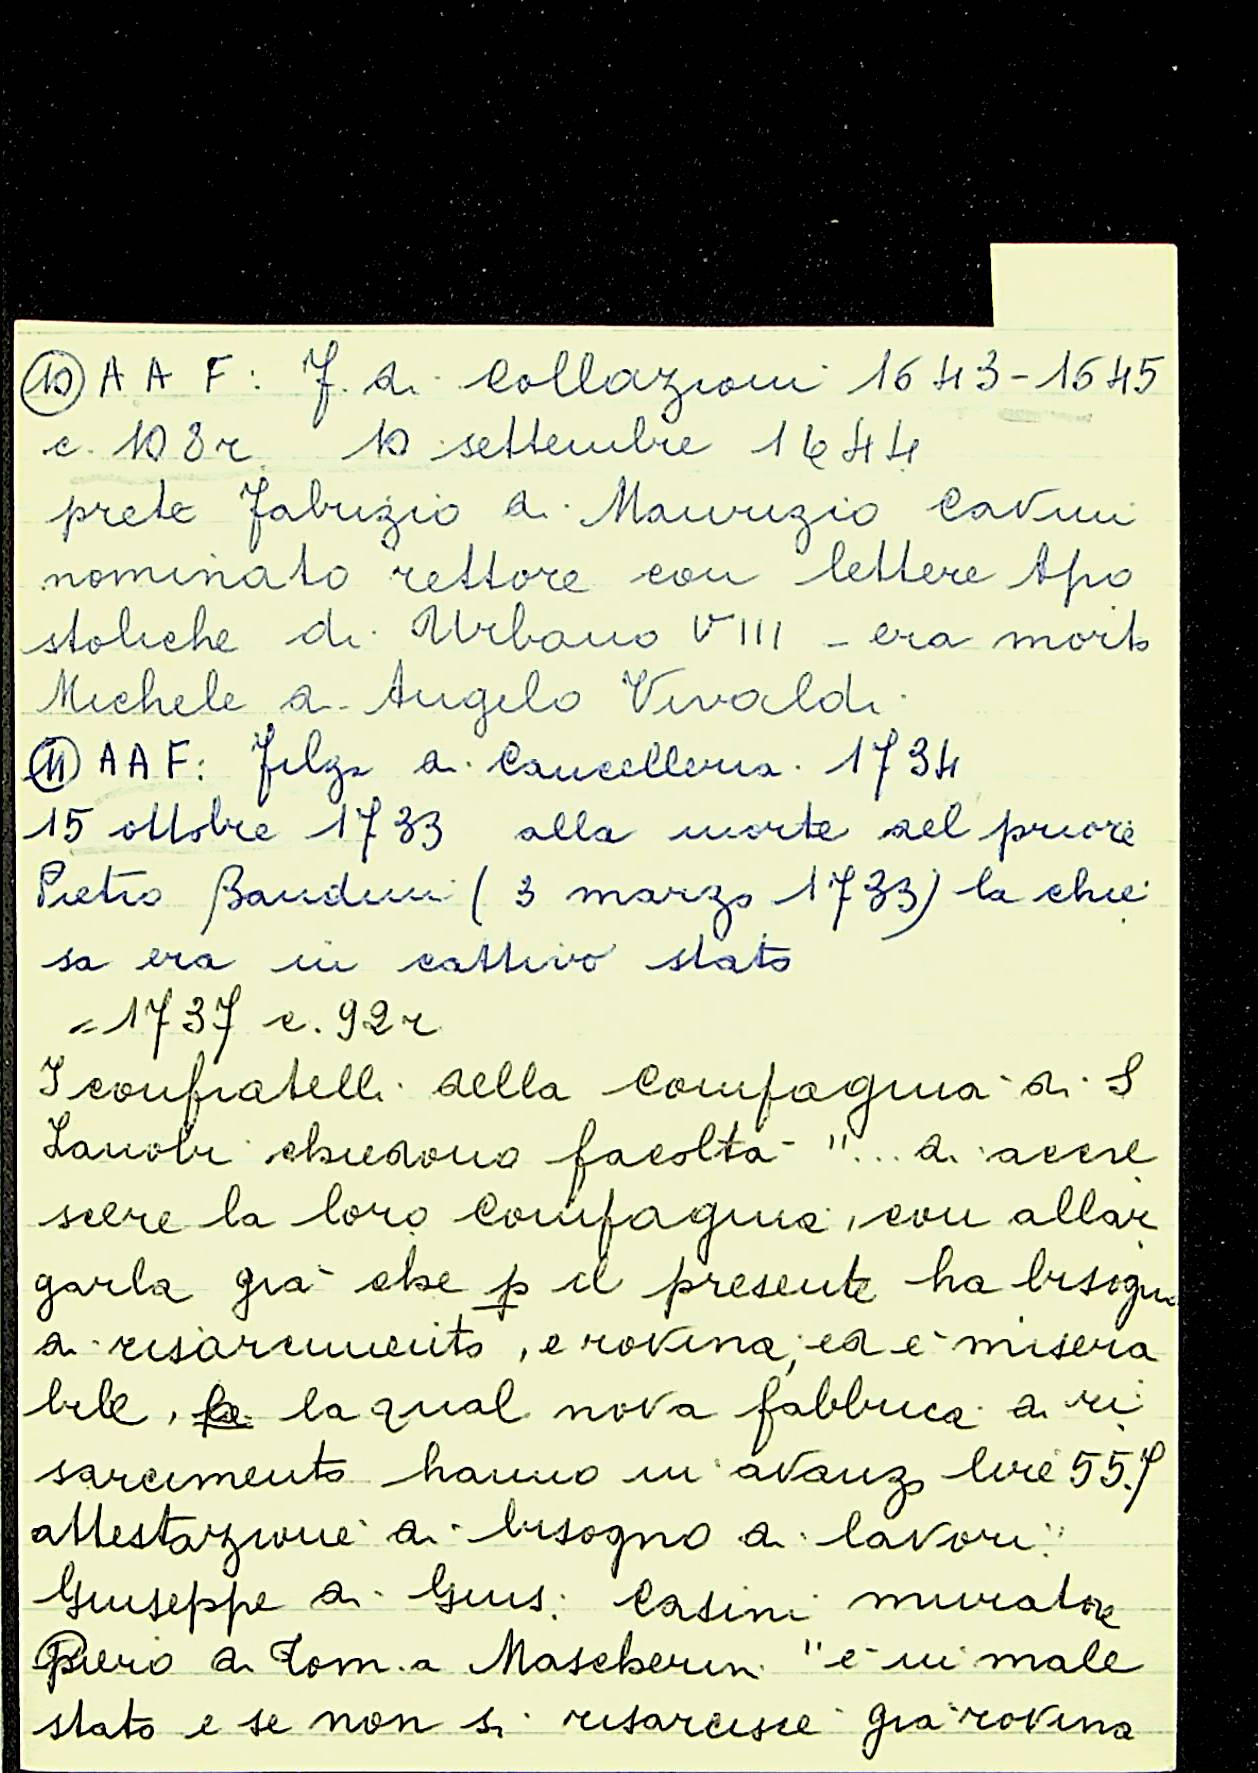 10 A A F: F. di Collazioni 1643-1645
c. 108r 10 settembre 1644
prete Fabrizio di Maurizio Cavini
nominato rettore con lettere Apo
stoliche di Urbano VIII - era morto
Michele di Angelo Vivaldi
11 A A F: Filza di Cancelleria 1734
15 ottobre 1733 alla morte del priore
Pietro Bandini (3 marzo 1733) la chie
sa era in cattivo stato
= 1737 c. 92r
I confratelli della Compagnia di S
Zanobi chiedono facoltà "... di accre
scere la loro Compagnia, con allar
garla già che p il presente ha bisogno
di risarcimento, e rovina, ed è misera
bile, la qual nova fabbrica di ri
sarcimento hanno in avanzo lire 55.7
attestazione di bisogno di lavori:"
Giuseppe di Gius: Casini muratore
Piero di Tom.a Mascherini "è in male
stato e se non si risarcisce già rovina